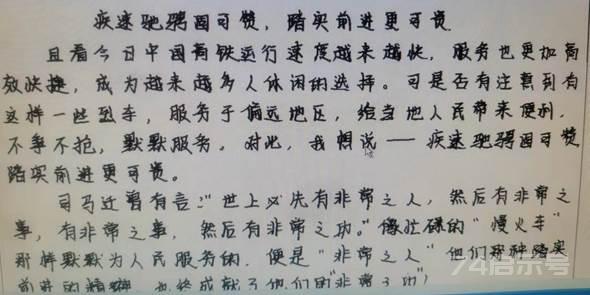 疾速驰骋固可赞，踏实前进更可贵
且看今日中国高铁运行速度越来越快，服务也更加高
效快捷，成为越来越多人休闲的选择。可是否有注意到有
这样一些列车，服务于偏远地区，给当地人民带来便利，
不争不抢，默默服务。对此，我想说——疾速驰骋固可赞
踏实前进更可贵。
司马迁曾有言："世上必先有非常之人，然后有非常之
事，有非常之事，然后有非常之功。"像忙碌的"慢火车"
那样默默为人民服务的，便是"非常之人"他们那种踏实
前进的精神，也终成就了他们的"非常之功"
74启示号